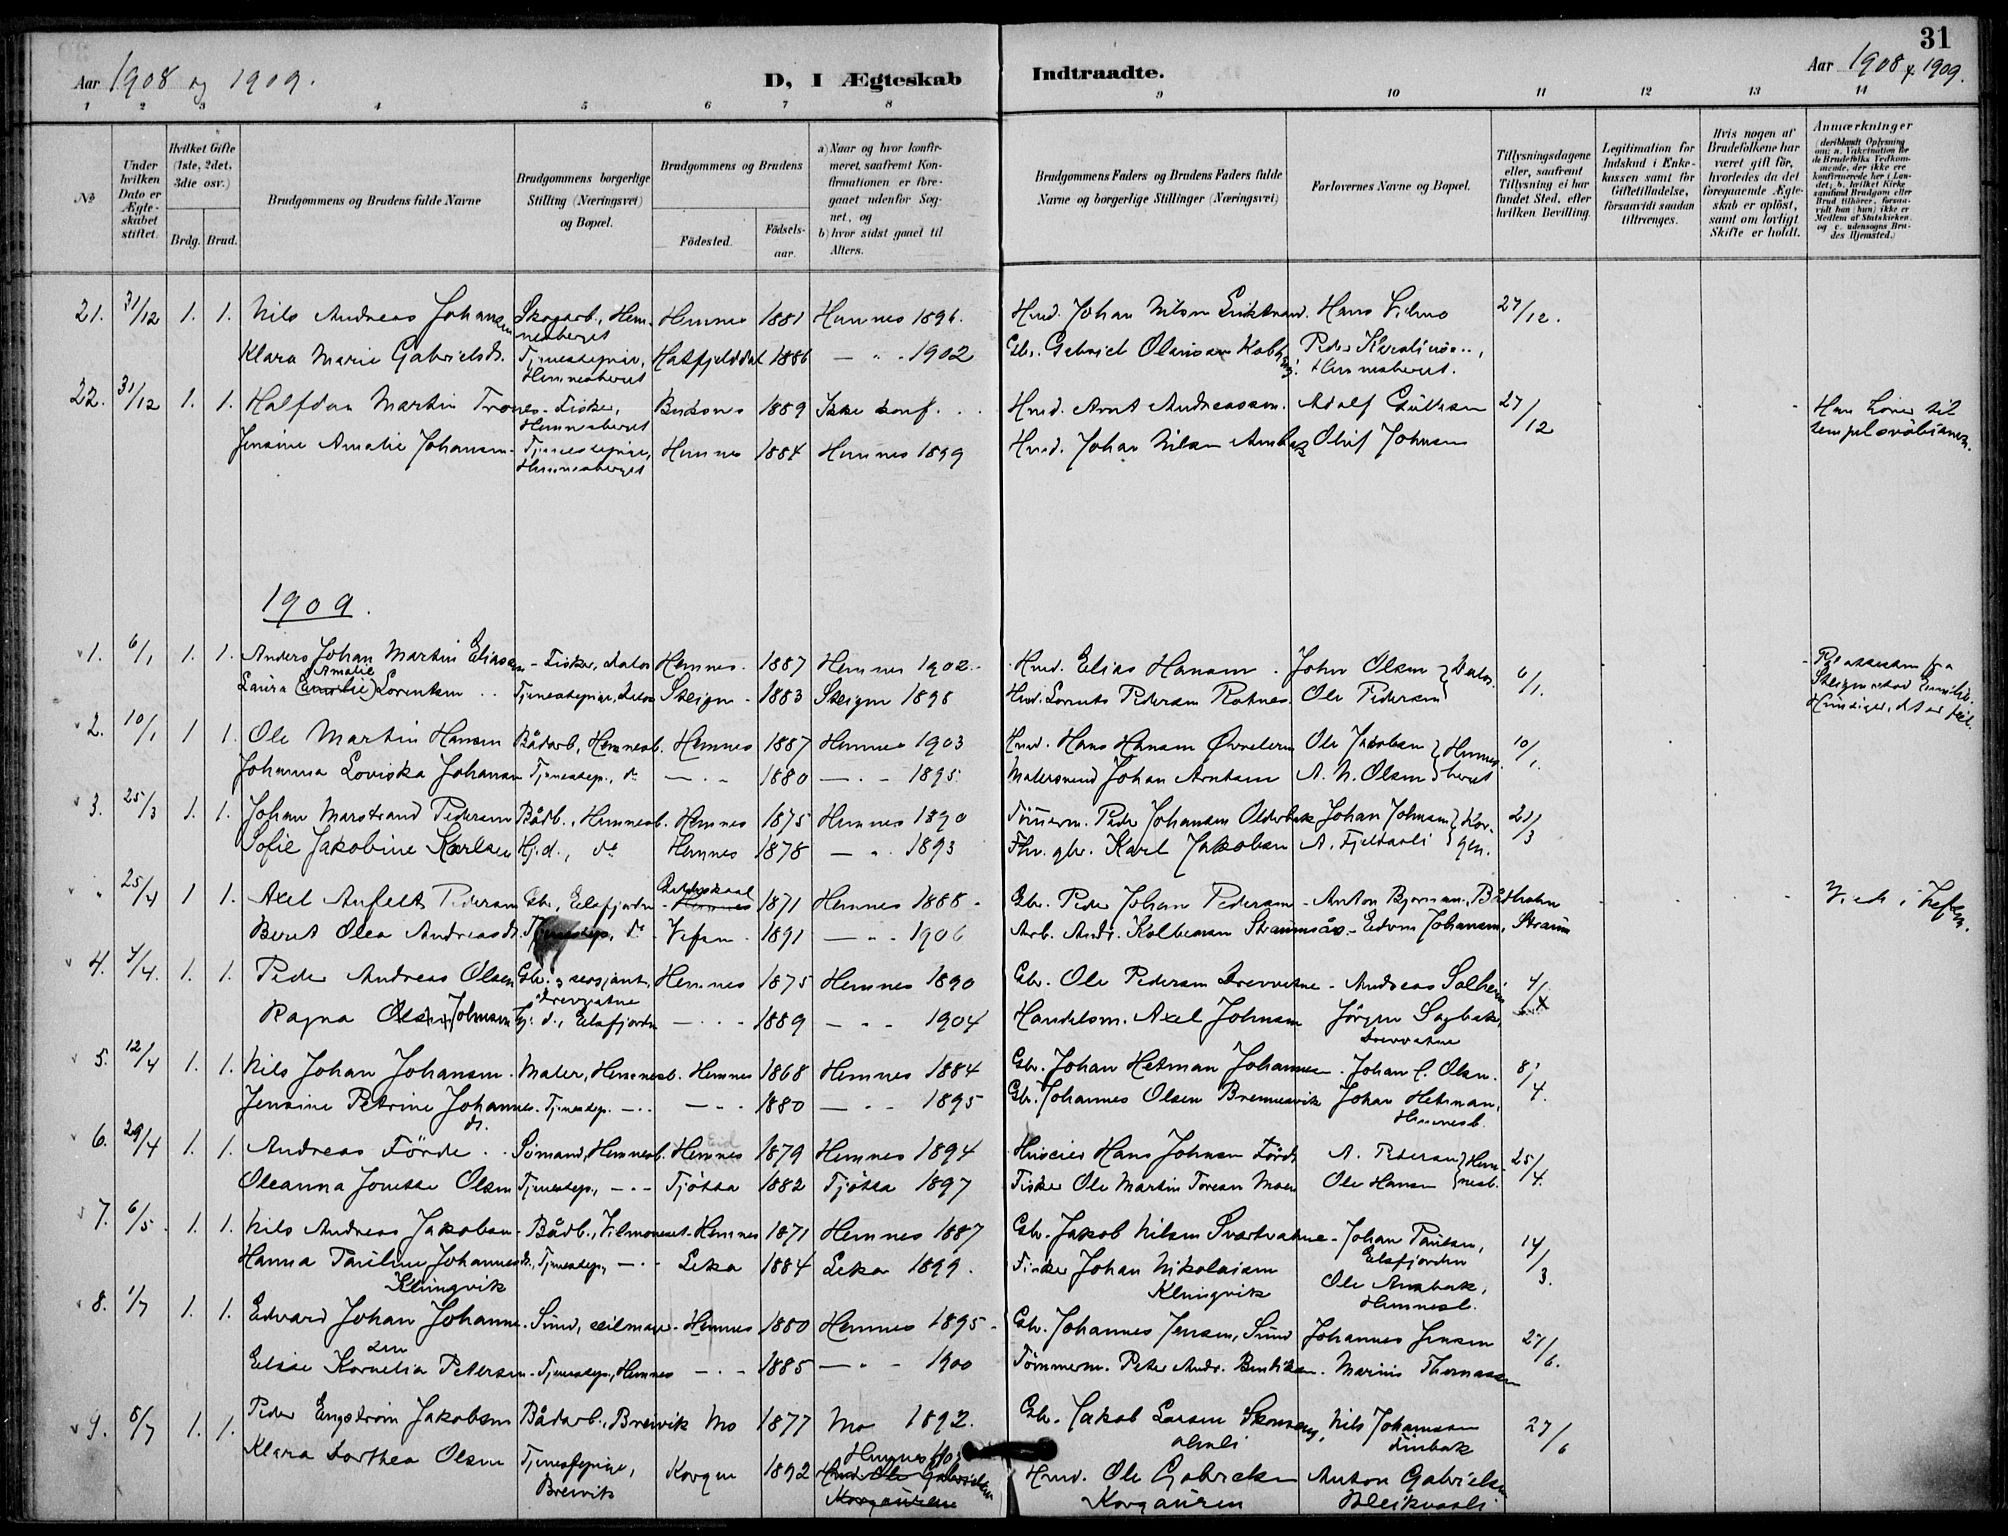 31
Aar 1908 og 1909.
D, I Ægteskab
Indtraadte.
Aar 1908 & 1909.
1 2 3 4 5 6 7 8 9 10 11 12 13 14
No
Under hvilken Dato er Ægteskabet stiftet.
Hvilket Gifte (1ste, 2det, 3die osv.)
Brdg. Brud.
Brudgommens og Brudens fulde Navne
Brudgommens borgerlige Stilling (Næringsvei) og Bopæl.
Brudgommens og Brudens
Födested.
Födsels-aar.
a) Naar og hvor konfirmeret, saafremt Konfirmationen er foregaaet udenfor Sognet, og
b) hvor sidst gaaet til Alters.
Brudgommens Faders og Brudens Faders fulde Navne og borgerlige Stillinger (Næringsvei)
Forlovernes Navne og Bopæl.
Tillysningsdagene eller, saafremt Tillysning ei har fundet Sted, efter hvilken Bevilling.
Legitimation for Indskud i Enkekassen samt for Giftetilladelse, forsaavidt saadan tiltrænges.
Hvis nogen af Brudefolkene har været gift för, hvorledes da det foregaaende Ægteskab er oplöst, samt om lovligt Skifte er holdt.
Anmærkninger (deriblandt Oplysning om: a. Vaksination for de Brudefolks Vedkommende, der ikke ere konfirmerede her i Landet; b. hvilket Kirkesamfund Brudgom eller Brud tilhörer, forsaavidt han (hun) ikke er Medlem af Statskirken, og c. udensogns Brudes Hjemsted.)
21. 31/12 1. 1. Nils Andreas Johansen Skogarb., Hemnesberget Hemnes 1881 Hemnes 1896. Hmd. Johan Nilsen Hans 27/12.
Klara Marie Gabrielsdr. Tjenestepige, Hemnesberget Hatfjelddal 1886 — " - 1902 Gbr. Gabriel Peder Hemnesberget.
22. 31/12 1. 1. Halfdan Martin Trones - Fisker, Hemnesberget Buksnes 1889 Ikke konf. . . Hmd. Arnt Andreassen. Adolf 27/12 Han hører til
Jensine Amalie Johansen - Tjenestepige, Hemnesberget Hemnes 1884 Hemnes 1899 Hmd. Johan Nilsen Oluf Johnsen
1909.
1. 6/1 1. 1. Anders Johan Martin Eliasen - Fisker, Hemnes. 1887 Hemnes 1902. Hmd. Elias Hansen. John Olsen 6/1. fra
Laura (Emelie) Amalie Lorentsen . . Tjenestepige, Steigen - 1883 Steigen 1898 Hmd. Lorents Pedersen Rotnes. Ole Pedersen
2. 10/1 1 1. Ole Martin Hansen Bådarb, Hemnesb. Hemnes 1887 Hemnes 1903 Hmd. Hans Hansen Ole Jakobsen } Hemnes- 10/1.
Johanna Loviska Johansen Tjenestep., do — . - 1880 — . - 1895. Malersvend Johan Arntsen A. N. Olsen } berget
3. 25/3 1. 1. Johan Marstrand Pedersen Bådb., Hemnesb. Hemnes 1875 Hemnes 1890 Tömerm. Peder Johansen Olderbak Johan Johnsen } Kor- 21/3
Sofie Jakobine Karlsen Hj.d., do Hemnes 1878 — " - 1893 Fhv. gbr. Karl Jakobsen A. Fjeldavli } gen.
" 25/4 1 1. Axel Anfelt Pedersen Gbr., Elsfjorden Hemnes 1871 Hemnes 1888 - Gbr. Peder Johan Pedersen - Anton Bjørnson, Båtholm
Berit Olea Andreasdr. Tjenestep, do Vefsn - 1891 — " - 1906 Arb. Andr. Kolbensen Straumsås - Edvin Johansen, Straum
4. 4/4. 1. 1. Peder Andreas Olsen Gbr. og sersjant, Drevvatne Hemnes 1875 Hemnes 1890 Gbr. Ole Pedersen Drevvatne - Andreas Solheim 4/4
Ragna Olsen Johnsen Hj. d., Elsfjorden — . . - 1889 — . - 1904 Handelsm. Axel Johnsen Jörgen Sagbak, Drevvatne
5. 12/4 1. 1. Nils Johan Johansen. Maler, Hemnesb. Hemnes 1868 Hemnes 1884 Gbr. Johan Hetman Johannesen. Johan C. Olsen. 8/4.
Jensine Petrine Johannesdr. Tjenestep. — . . — . . 1880 — . . - 1895 Gbr. Johannes Olsen Bremnesvik Johan Hetman, Hemnesb.
6. 29/4 1. 1. Andreas Förde . . Sømand, Hemnesb. Hemnes Eid 1879 Hemnes 1894 Huseier Hans Johnsen Förde A. Pedersen } Hem- 25/4.
Oleanna Jonette Olsen Tjenestep., — . - Tjötta 1882 Tjötta 1897 Fisker Ole Martin Toresen Moen Ole Hansen } nesb.
7. 6/5. 1. 1. Nils Andreas Jakobsen - Bådb., Vilmoneset. Hemnes 1871 Hemnes 1887 Gbr. Jakob Nilsen Svartvatne - Johan Paulsen, Elsfjorden 14/3.
Hanna Pauline Johannesdr. Klungvik Tjenestep, — . - Leka 1884 Leka 1899. Fisker Johan Nikolaisen Klungvik Ole Hemnesb.
8. 1/7 1. 1. Edvard Johan Johannesen Sund, Hemnes 1880 Hemnes 1895 - Gbr. Johannes Jensen, Sund Johannes Jensen 27/6.
Elise Kornelia Petersen. Tjenestep, Hemnes — . - 1885 — . - 1900 Tömmerm. Peter Andr. Bentsen. Marius Thomassen
9. 8/7 1. 1. Peder Engström Jakobsen Bådarb., Breivik Mo 1877 Mo 1892. Gbr. Jakob Larsen Nils Johannesen Finbak 27/6
Klara Dorthea Olsen Tjenestepige, Breivik Korgen 1892 Hemnes Hmd. Ole Gabrielsen Korgauren Hmd. Ole Gabrielsen Korgauren Anton Gabrielsen Bleikvasli